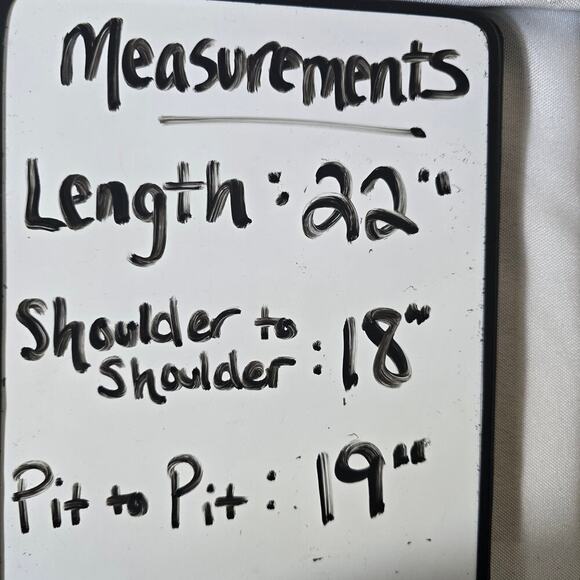 Measurements
Length: 22"
Shoulder to
Shoulder: 18"
Pit to Pit: 19"